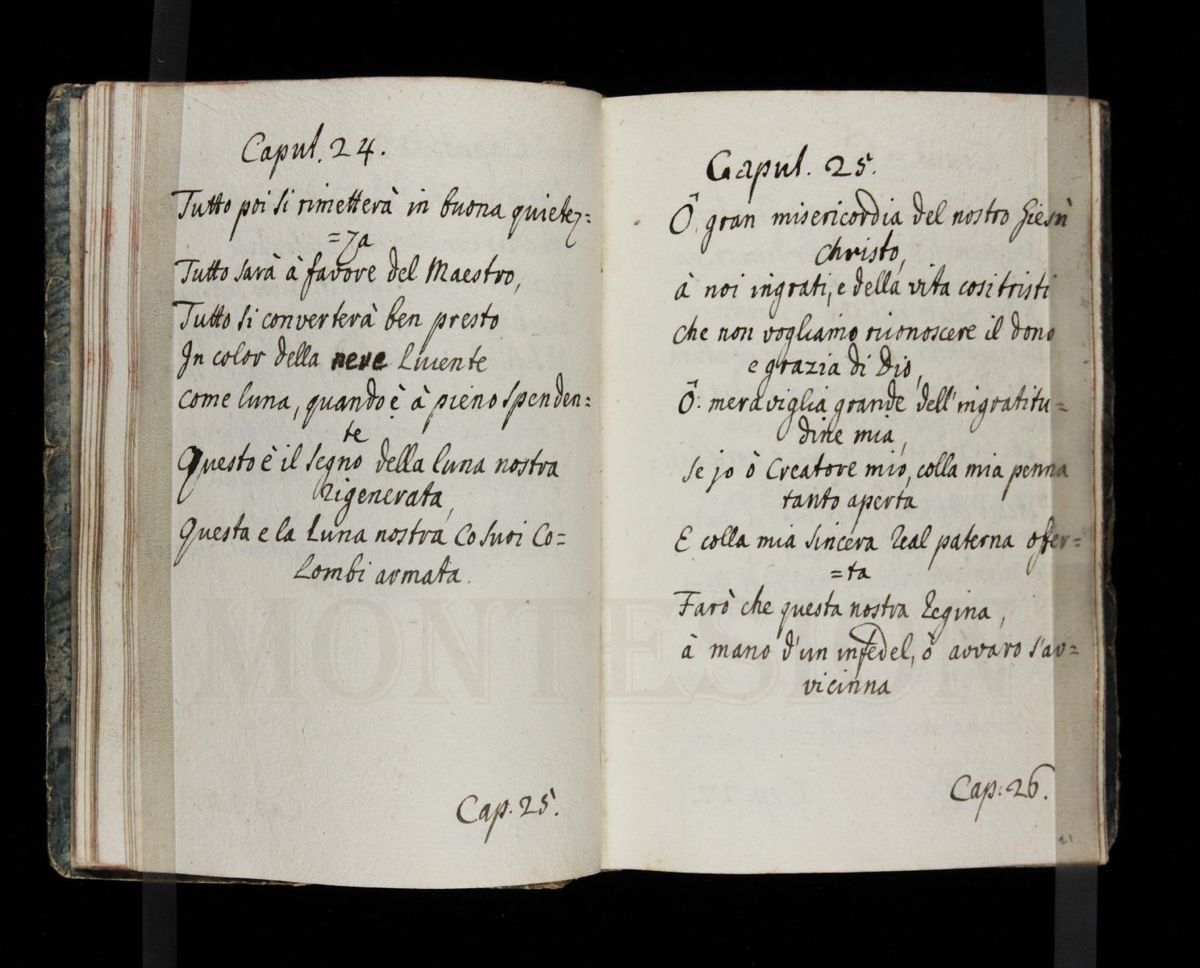 Caput. 24.
Tutto poi si rimetterà in buona quietez=
=za
Tutto sarà à favore del Maestro,
Tutto si converterà ben presto
In color della neve Lucente
come luna, quando è à pieno spenden=
te
Questo è il segno della luna nostra
rigenerata,
Questa e la Luna nostra Co suoi Co=
Lombi armata.
Cap. 25.
Caput. 25.
Ô gran misericordia del nostro Giesù
Christo,
à noi ingrati, e della vita cosi tristi
che non vogliamo riconoscere il dono
e grazia di Dio,
Ô: meraviglia grande dell'ingratitu=
dine mia,
se jo ò Creatore mio, colla mia penna
tanto aperta
E colla mia sincera real paterna offer=
=ta
Farò che questa nostra Regina,
à mano d'un infedel, ò avvaro s'av=
vicinna
Cap: 26.
21
MONTESION